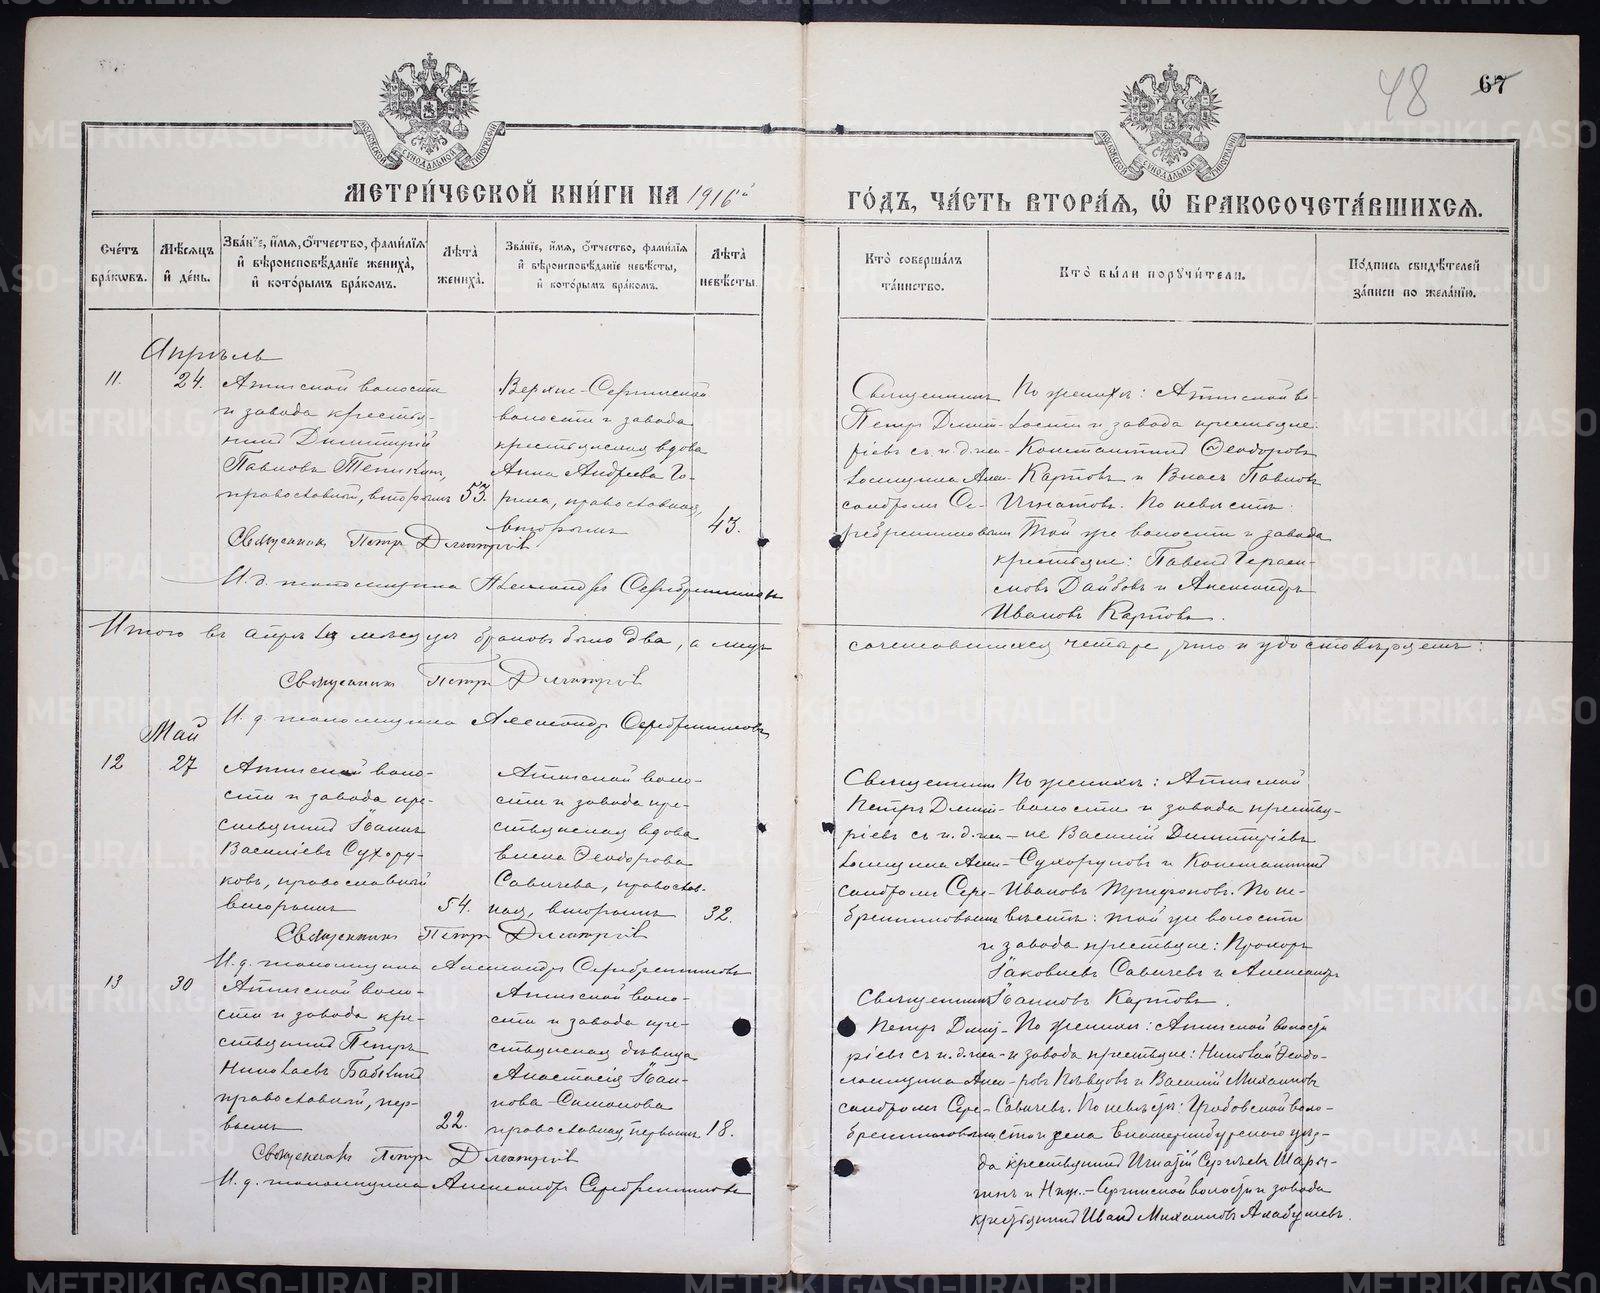 48
67
МОСКОВСКОЙ СѴНОДАЛЬНОЙ ТИПОГРАФІИ
МОСКОВСКОЙ СѴНОДАЛЬНОЙ ТИПОГРАФІИ
МЕТРИ́ЧЕСКОЙ КНИ́ГИ НА 1916й
ГО́ДЪ, ЧА́СТЬ ВТОРА́Я, Ѿ БРАКОСОЧЕТА́ВШИХСЯ.
Сче́тъ бра́кωвъ.
Мѣ́сяцъ и́ де́нь.
Зва́нїе, и́мя, ѻ́тчество, фами́лїя и́ вѣроисповѣ́данїе жениха̀, и́ кото́рымъ бра́комъ.
Лѣ́та жениха̀.
Зва́нїе, и́мя, ѻ́тчество, фами́лїя и́ вѣроисповѣ́данїе невѣ́сты, и́ кото́рымъ бра́комъ.
Лѣ́та невѣ́сты.
Кто̀ соверша́лъ та́инство.
Кто̀ бы́ли пору́чители.
По́дпись свидѣ́телей за́писи по жела́нїю.
Апрѣль
11.
24.
Атигской волости
и завода крестья-
нинъ Димитрій
Павловъ Тепикинъ,
православный, вторымъ
53.
Верхне-Сергинской
волости и завода
крестьянская вдова
Анна Андреева Го-
рина, православная,
вторымъ
43.
Священникъ
Петръ Димит-
ріевъ съ и. д. пса-
ломщика Алек-
сандромъ Се-
ребренниковымъ
По женихѣ: Атигской во-
лости и завода крестьяне:
Константинъ Ѳеодоровъ
Картовъ и Власъ Павловъ
Игнатовъ. По невѣстѣ:
Той же волости и завода
крестьяне: Павелъ Гераси-
мовъ Дайбовъ и Александръ
Ивановъ Картовъ.
Священникъ Петръ Димитріевъ
И. д. псаломщика Александръ Серебренниковъ
Итого въ апрѣлѣ мѣсяцѣ браковъ было два, а лицъ
сочетавшихся четыре, что и удостовѣряемъ:
Священникъ Петръ Димитріевъ
И. д. псаломщика Александръ Серебренниковъ
Май
12
27
Атигской воло-
сти и завода кре-
стьянинъ Іоаннъ
Василіевъ Сухору-
ковъ, православный
вторымъ
54.
Атигской воло-
сти и завода кре-
стьянская вдова
Елена Ѳеодорова
Савичева, православ-
ная, вторымъ
32.
Священникъ
Петръ Димит-
ріевъ съ и. д. пса-
ломщика Алек-
сандромъ Сере-
бренниковымъ
По женихѣ: Атигской
волости и завода крестья-
не Василій Димитріевъ
Сухоруковъ и Константинъ
Ивановъ Трифоновъ. По не-
вѣстѣ: той же волости
и завода крестьяне: Прохоръ
Іаковлевъ Савичевъ и Александръ
Іоанновъ Картовъ.
Священникъ Петръ Димитріевъ
И. д. псаломщика Александръ Серебренниковъ
13
30
Атигской воло-
сти и завода кре-
стьянинъ Петръ
Николаевъ Бабкинъ
православный, пер-
вымъ
22.
Атигской воло-
сти и завода кре-
стьянская дѣвица
Анастасія Іоан-
нова Симанова
православная, первымъ
18.
Священникъ
Петръ Димит-
ріевъ съ и. д. пса-
ломщика Алек-
сандромъ Сере-
бренниковымъ
По женихѣ: Атигской волости
и завода крестьяне: Николай Ѳеодо-
ровъ Пѣвцовъ и Василій Михаиловъ
Савичевъ. По невѣстѣ: Грабовской воло-
сти и села Екатеринбургского уѣз-
да крестьянинъ Игнатій Сергѣевъ Шары-
гинъ и Ниж.-Сергинской волости и завода
крестьянинъ Иванъ Михаиловъ Алабушевъ.
Священникъ Петръ Димитріевъ
И. д. псаломщика Александръ Серебренниковъ
METRIKI.GASO-URAL.RU